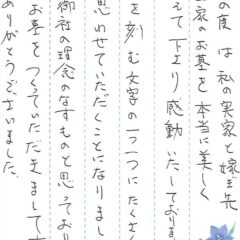 の度は私の実家と嫁ぎ先
家のお墓を本当に美しく
えて下さり感動いたしておりま
を刻む文字の一つ一つにたくさ
思わせていただくことになりまし
御社の理念のなすものと思っており
お墓をつくっていただきまして
ありがとうございました。